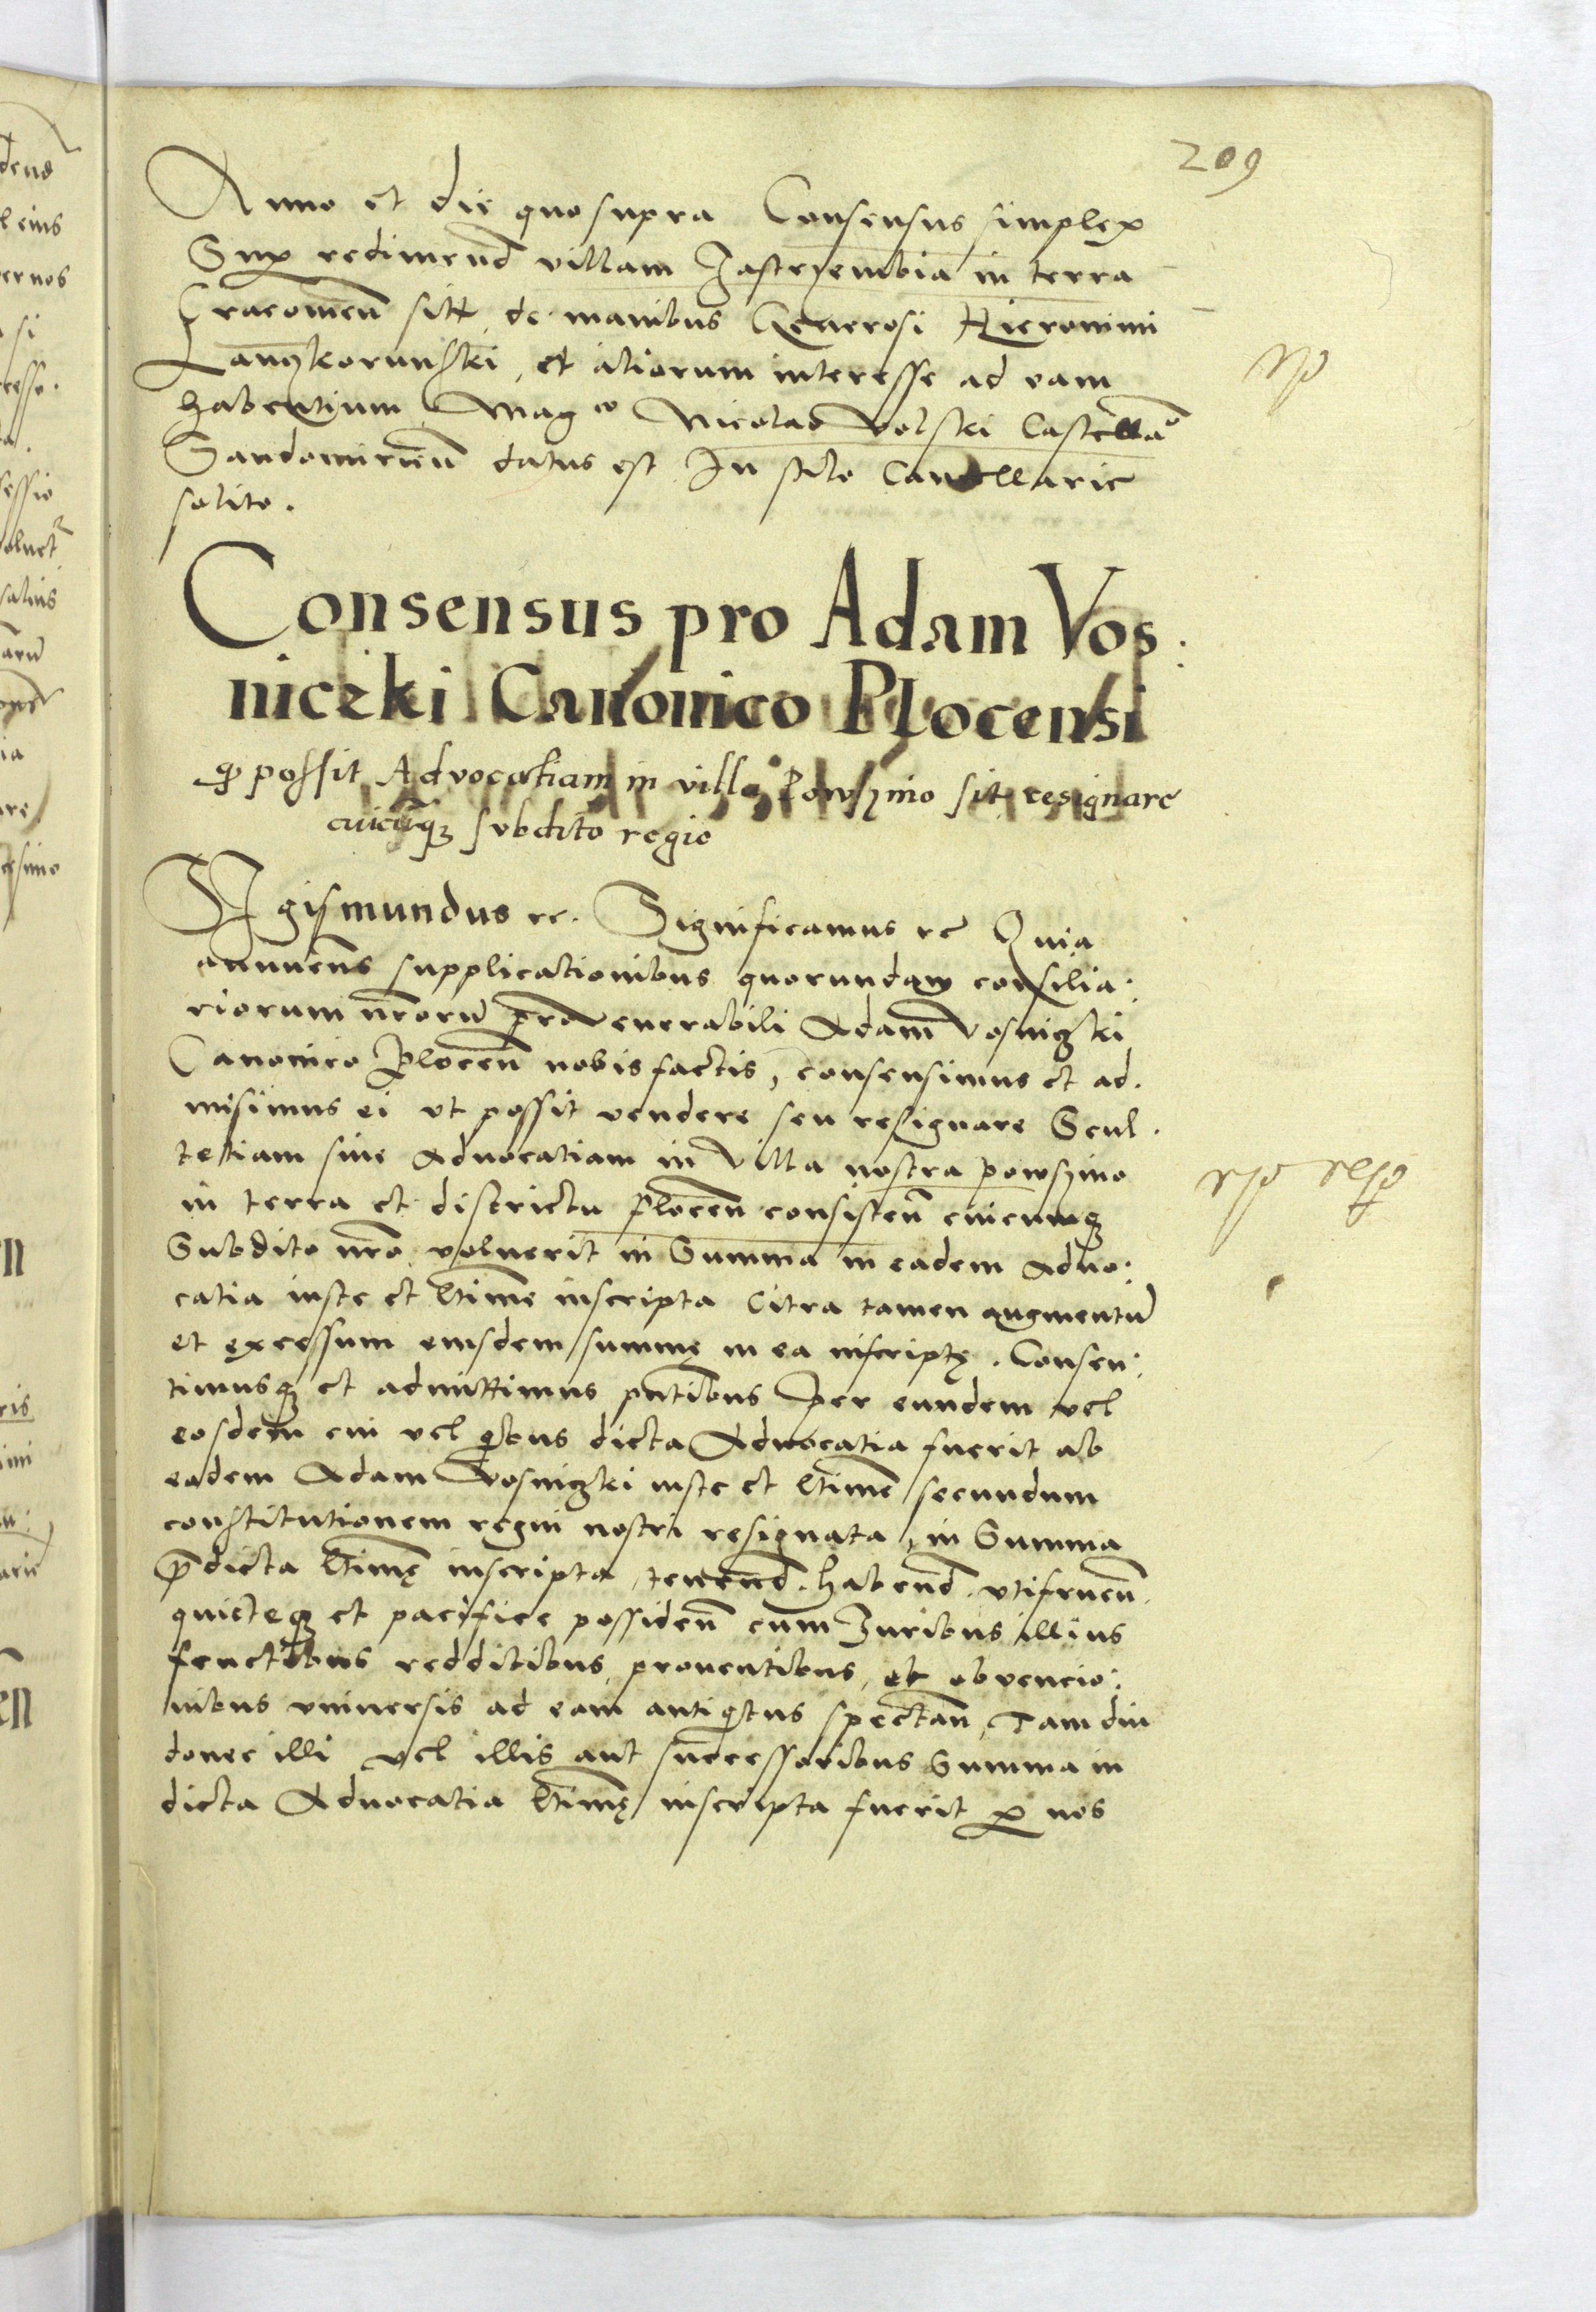 209
Anno et die quo supra Consensus simplex
Sup redimend villam Jastrzembia in terra
Cracouien sitt de manibus Generosi Hieronimi
Lanczkorunski, et aliorum interesse ad eam
habentium Magco Nicolao Volski Castellão
Sandomirien datus est In stilo Cancellarie
solito.
Consensus pro Adam Vos:
niczki Canonico Plocensi
qp possit Advocatiam in villa Powszino sit resignare
cuicūq3 subdito regio
Sigismundus rc. Significamus rc Quia
annuens supplicationibus quorundam consilia:
riorum nrorū pro venerabili Adam Vosniczki
Canonico Plocen nobis factis, consensimus et ad.
misimus ei vt possit vendere seu resignare Scul.
tetiam siue Aduocatiam in villa nostra powszino
in terra et districtu Plocen consisten cuicumq3
Subdito nro voluerit in Summa in eadem Aduo:
catia iuste et ltime inscripta Citra tamen augmentū
et excessum eiusdem summę in ea inscriptę. Consen:
timusq3 et admittimus pntibus Per eundem vel
eosdem cui vel qibus dicta Aduocatia fuerit ab
eodem Adam Vosniczki iuste et ltime secundum
constitutionem regni nostri resignata, in Summa
pdicta ltimę inscripta, tenend. habend. vtifruen.
quieteq3 et pacifice possiden cum Juribus illius
fructibus redditibus prouentibus, et obuencio:
nibus vniuersis ad eam antiqitus spectan, Tam diu
donec illi vel illis aut successoribus Summa in
dicta Aduocatia ltimę inscripta fuerit p nos